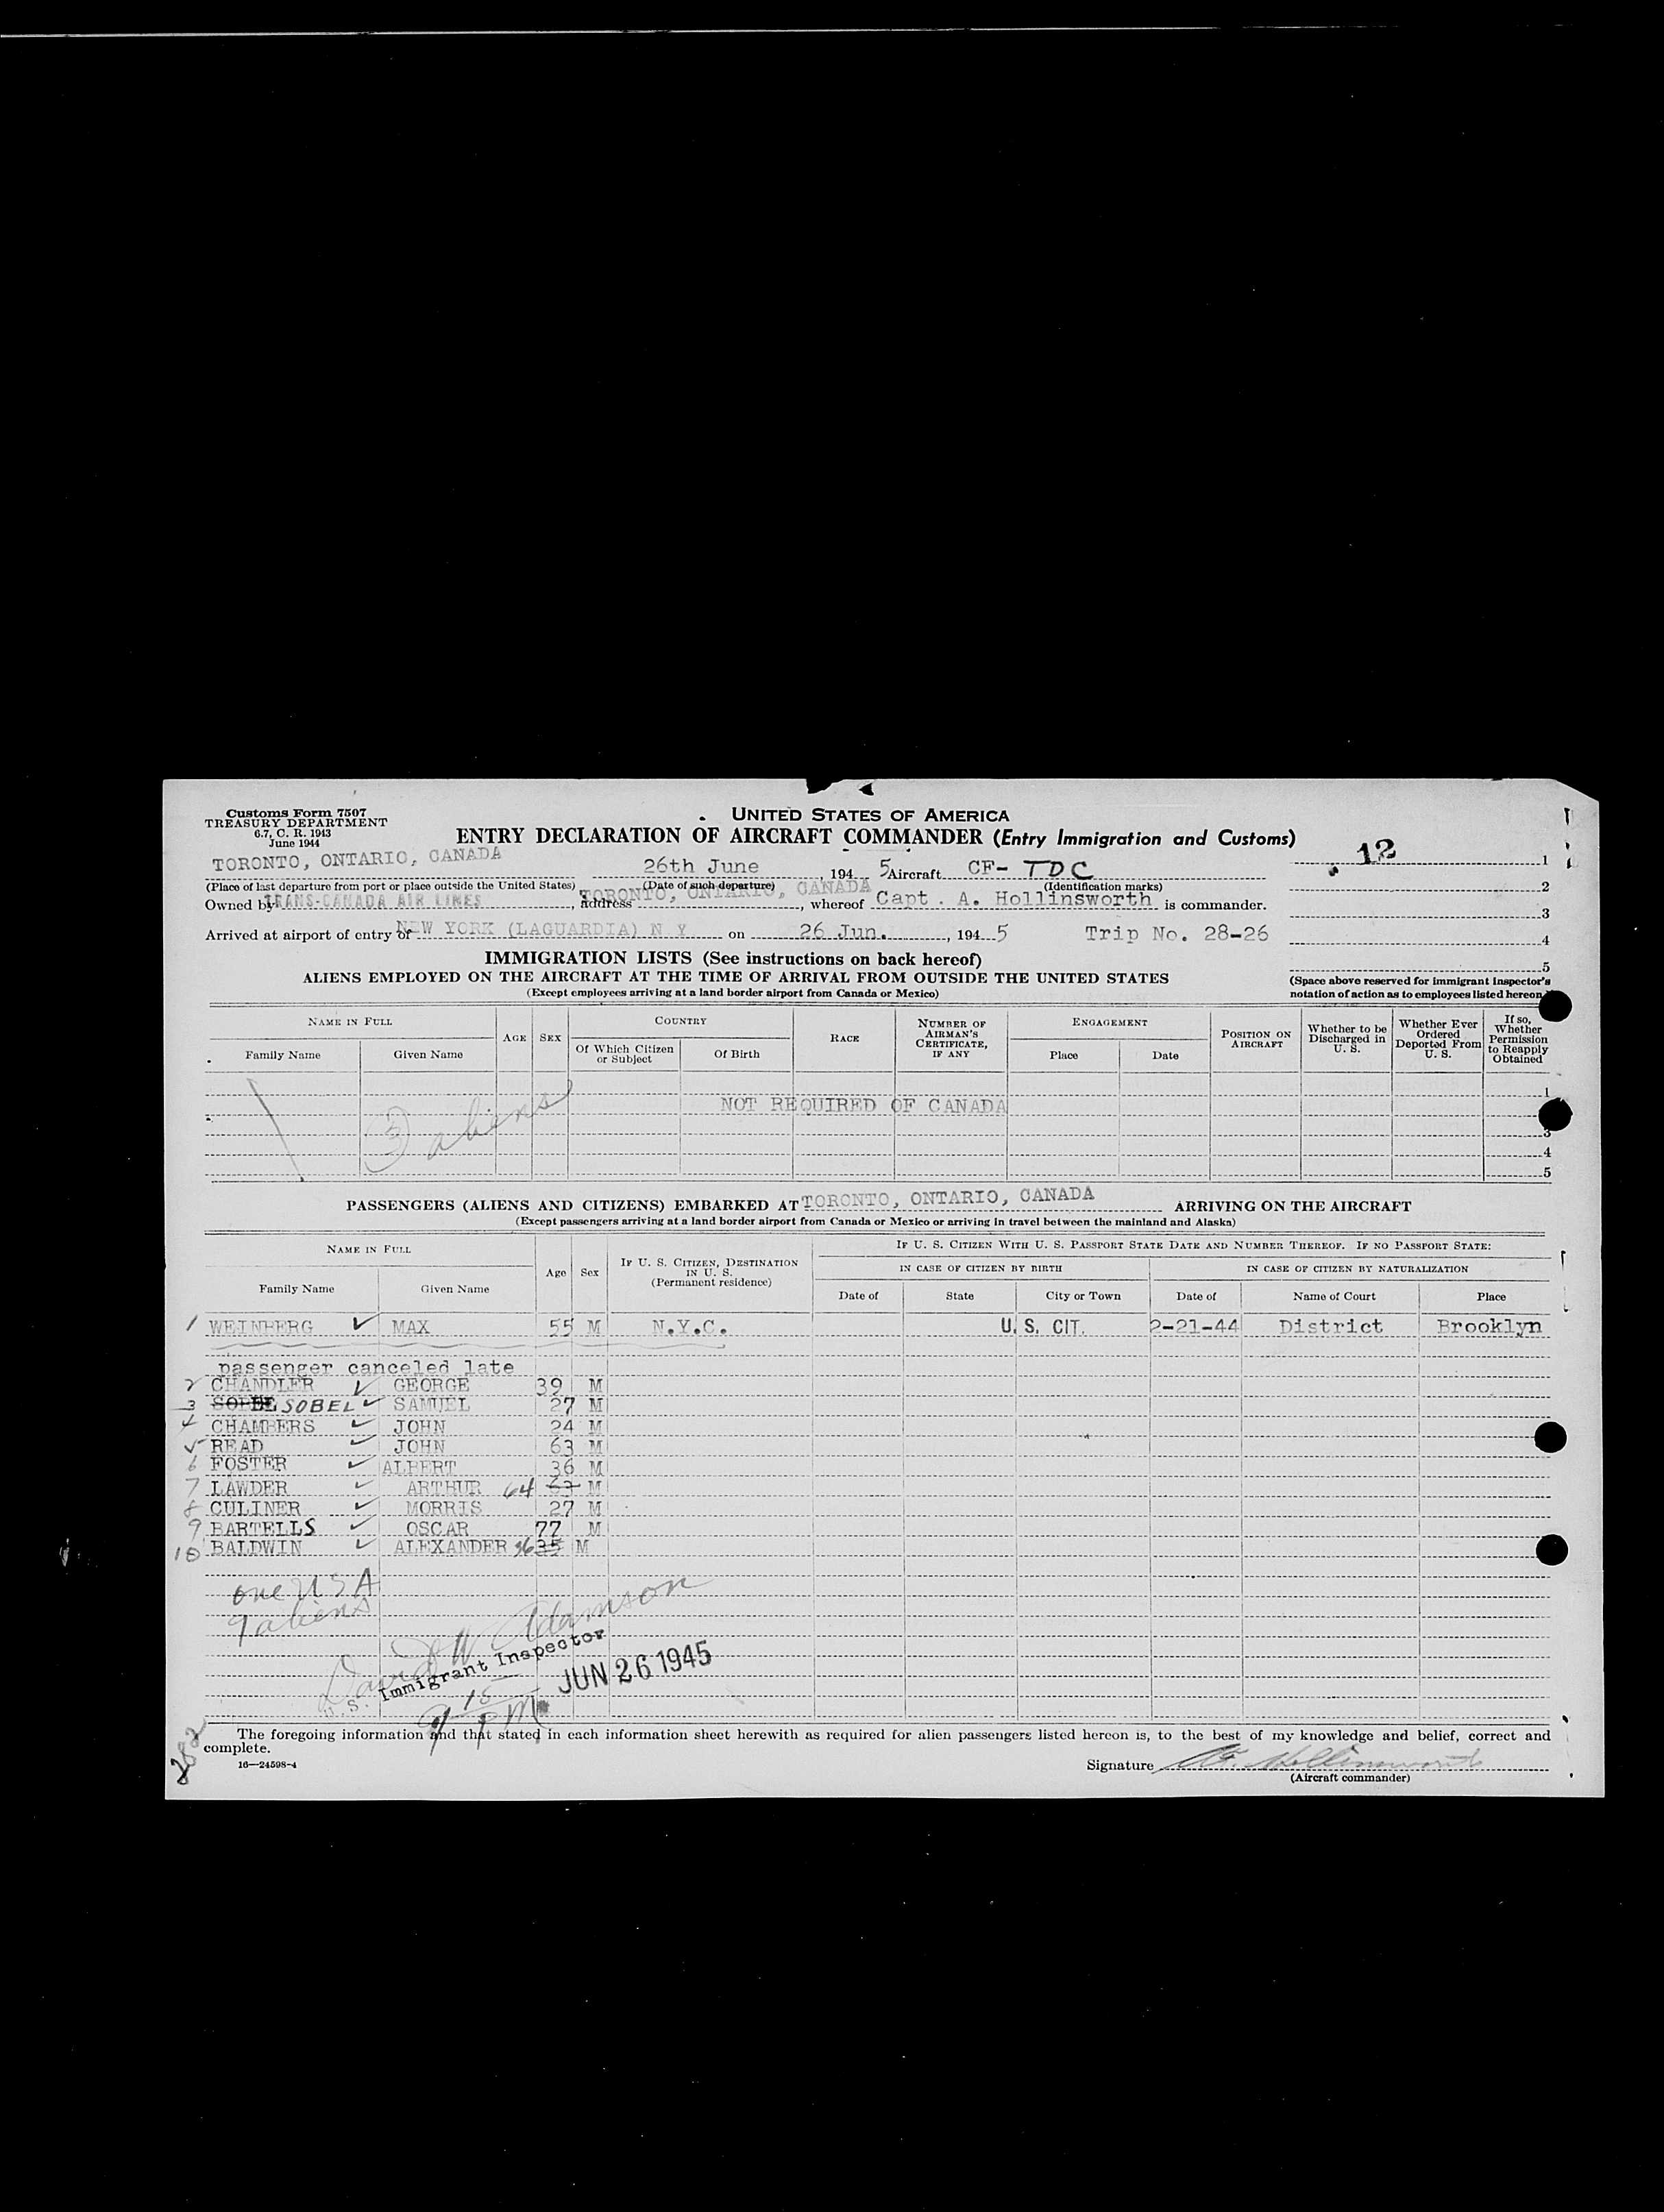 Customs Form 7507
TREASURY DEPARTMENT
6.7, C. R. 1943
June 1944
UNITED STATES OF AMERICA
ENTRY DECLARATION OF AIRCRAFT COMMANDER (Entry Immigration and Customs)
12
TORONTO, ONTARIO, CANADA 26th June, 194 5 Aircraft CF- TDC
(Place of last departure from port or place outside the United States) (Date of such departure) (Identification marks)
Owned by TRANS-CANADA AIR LINES, address TORONTO, ONTARIO, CANADA, whereof Capt. A. Hollinsworth is commander.
Arrived at airport of entry of NEW YORK (LAGUARDIA) N Y on 26 Jun., 194 5 Trip No. 28-26
1
2
3
4
5
(Space above reserved for immigrant inspector's notation of action as to employees listed hereon.)
IMMIGRATION LISTS (See instructions on back hereof)
ALIENS EMPLOYED ON THE AIRCRAFT AT THE TIME OF ARRIVAL FROM OUTSIDE THE UNITED STATES
(Except employees arriving at a land border airport from Canada or Mexico)
NAME IN FULL AGE SEX COUNTRY RACE NUMBER OF AIRMAN'S CERTIFICATE, IF ANY ENGAGEMENT POSITION ON AIRCRAFT Whether to be Discharged in U. S. Whether Ever Ordered Deported From U. S. If so, Whether Permission to Reapply Obtained
Family Name Given Name Of Which Citizen or Subject Of Birth Place Date
1
NOT REQUIRED OF CANADA
3 aliens
3
4
5
PASSENGERS (ALIENS AND CITIZENS) EMBARKED AT TORONTO, ONTARIO, CANADA ARRIVING ON THE AIRCRAFT
(Except passengers arriving at a land border airport from Canada or Mexico or arriving in travel between the mainland and Alaska)
NAME IN FULL Age Sex IF U. S. CITIZEN, DESTINATION IN U. S. (Permanent residence) IF U. S. CITIZEN WITH U. S. PASSPORT STATE DATE AND NUMBER THEREOF. IF NO PASSPORT STATE:
IN CASE OF CITIZEN BY BIRTH IN CASE OF CITIZEN BY NATURALIZATION
Family Name Given Name Date of State City or Town Date of Name of Court Place
1 WEINBERG MAX 55 M N.Y.C. U. S. CIT. 2-21-44 District Brooklyn
passenger canceled late
2 CHANDLER GEORGE 39 M
3 SOBEL SAMUEL 27 M
4 CHAMBERS JOHN 24 M
5 READ JOHN 63 M
6 FOSTER ALBERT 36 M
7 LAWDER ARTHUR 64 63 M
8 CULINER MORRIS 27 M
9 BARTELLS OSCAR 77 M
10 BALDWIN ALEXANDER 36 35 M
one USA
9 aliens
David W Adamson
U. S. Immigrant Inspector
JUN 26 1945
9 15 PM
282
The foregoing information and that stated in each information sheet herewith as required for alien passengers listed hereon is, to the best of my knowledge and belief, correct and
complete.
16—24598-4
Signature A. Hollinsworth
(Aircraft commander)